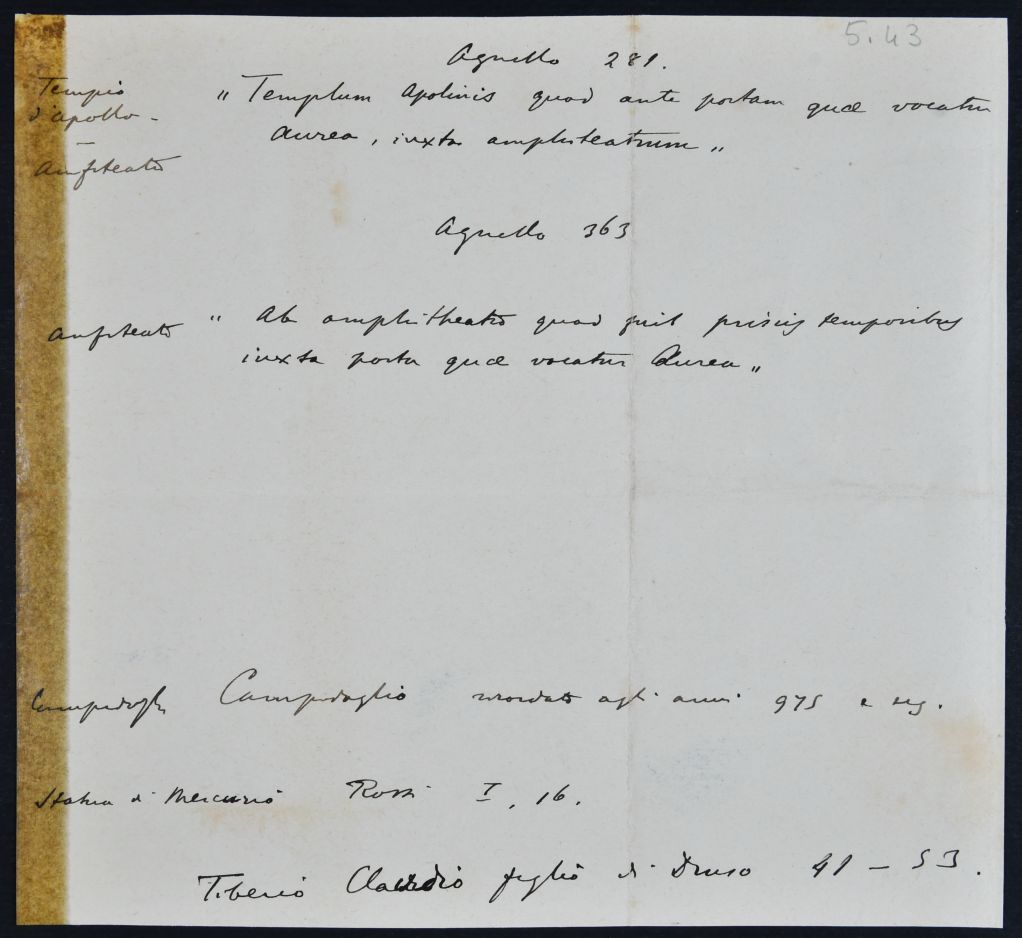 5.43
Agnello 281.
Tempio
d'apollo -
" Templum Apolinis quod ante portam quæ vocatur
Aurea, iuxta amphiteatrum „
—
Anfiteatro
Agnello 363
anfiteatro " Ab amphitheatro quod fuit priscis temporibus
iuxta porta quæ vocatur Aurea „
Campidoglio Campidoglio ricordato agli anni 975 e seg.
Statua di Mercurio Rossi I, 16.
Tiberio Claudio figlio di Druso 41 – 53.